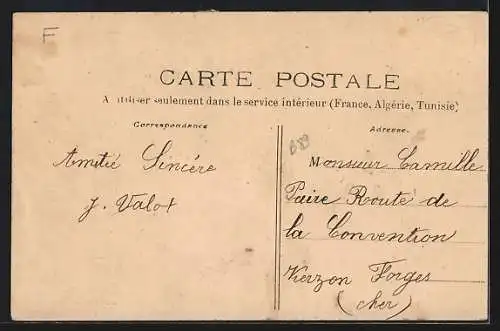 F
CARTE POSTALE
A utiliser seulement dans le service intérieur (France, Algérie, Tunisie)
Correspondance
Amitié Sincére
J. Valot
Adresse
689
Monsieur Camille
Paire Route de
la Convention
Vierzon Forges
(cher)